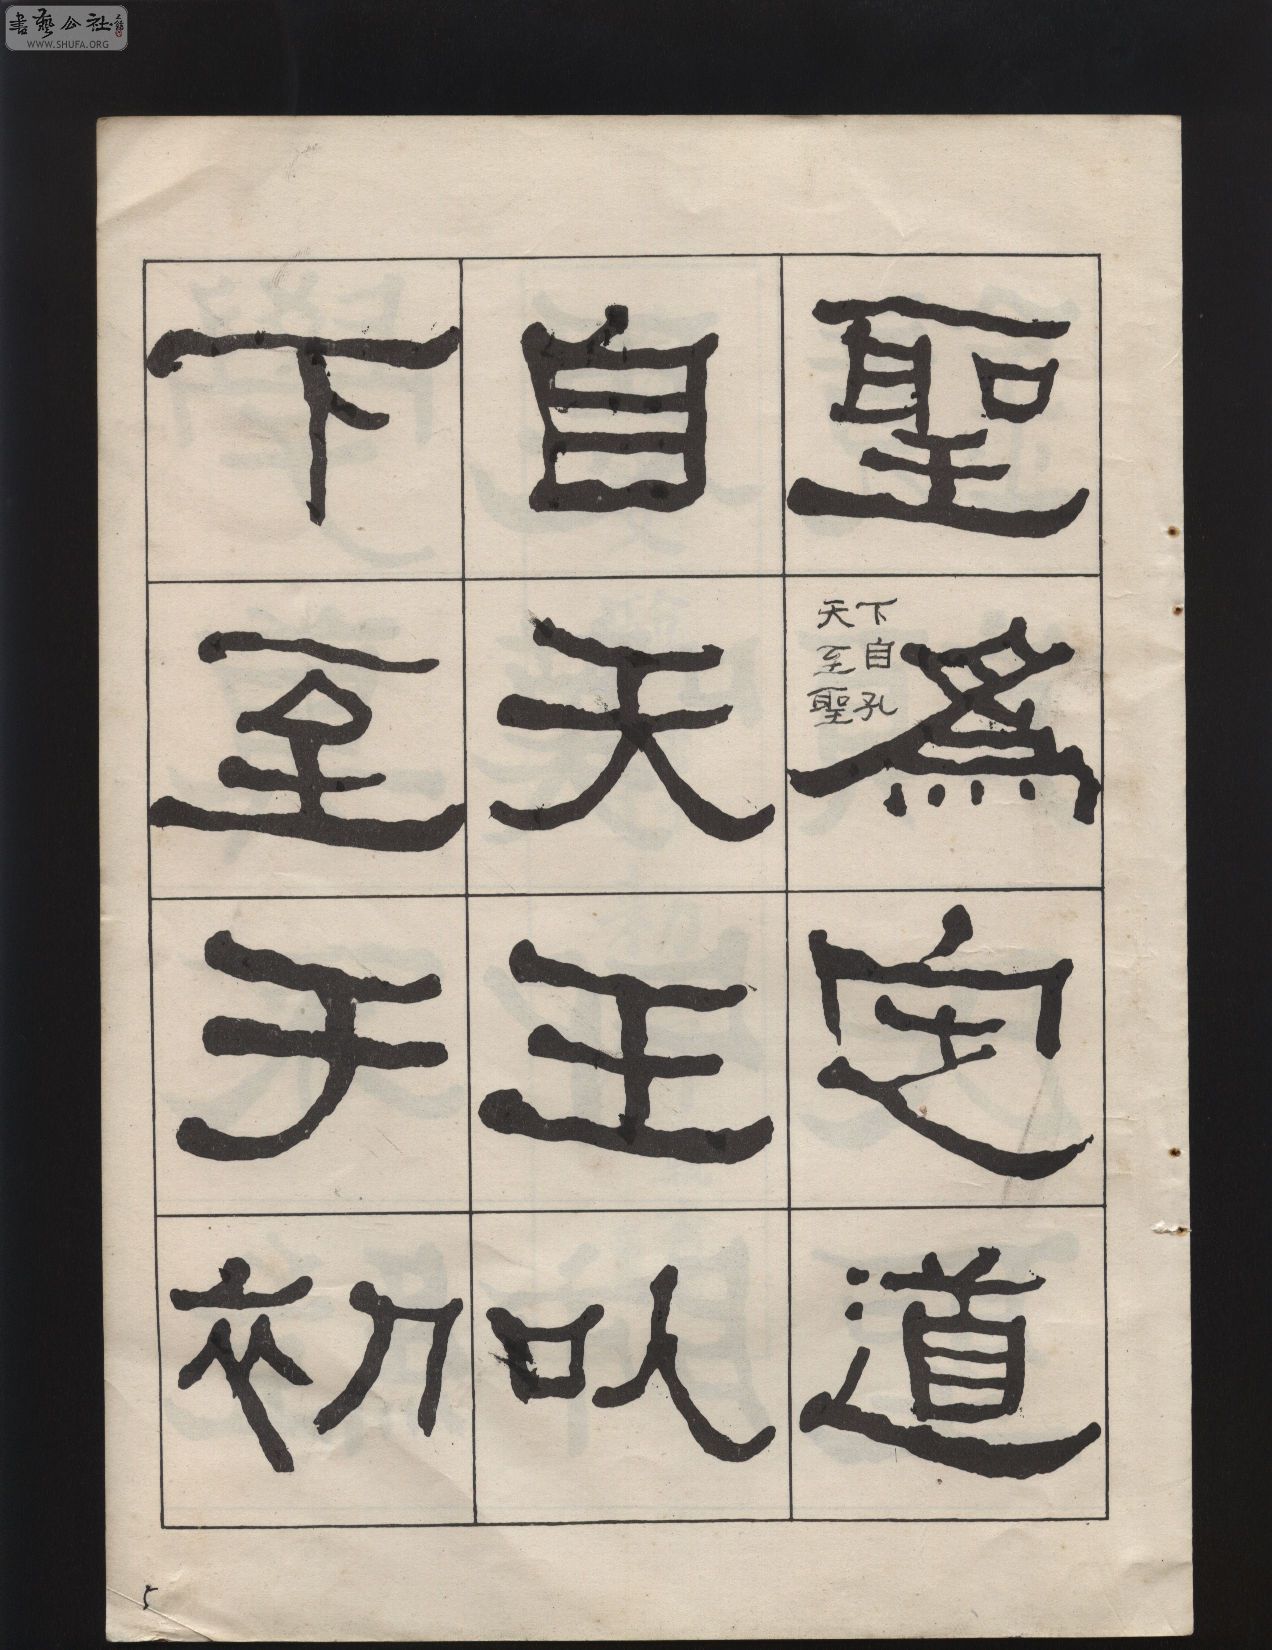 書藝公社
WWW.SHUFA.ORG
聖爲定道
下自孔
天至聖
自天王以
下至于初
5